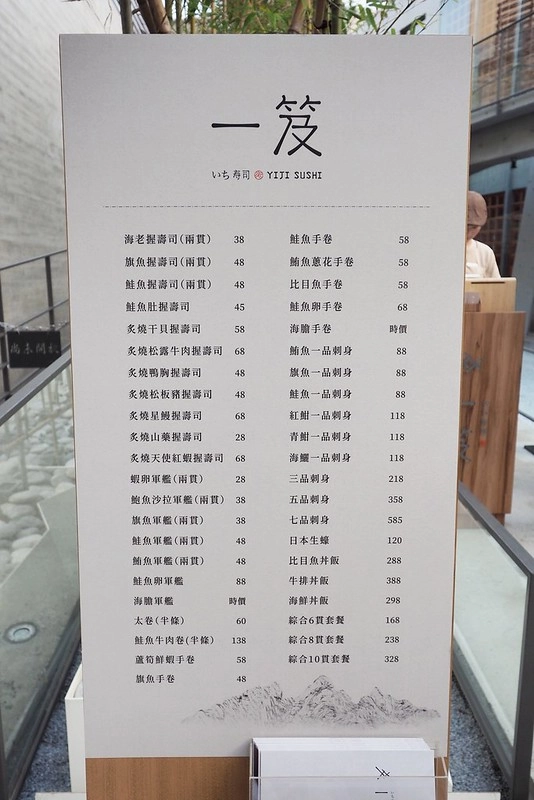 一笈
いち寿司 YIJI SUSHI
海老握壽司(兩貫) 38
旗魚握壽司(兩貫) 48
鮭魚握壽司(兩貫) 48
鮭魚肚握壽司 45
炙燒干貝握壽司 58
炙燒松露牛肉握壽司 68
炙燒鴨胸握壽司 48
炙燒松板豬握壽司 48
炙燒星鰻握壽司 68
炙燒山藥握壽司 28
炙燒天使紅蝦握壽司 68
蝦卵軍艦(兩貫) 28
鮑魚沙拉軍艦(兩貫) 38
旗魚軍艦(兩貫) 38
鮭魚軍艦(兩貫) 48
鮪魚軍艦(兩貫) 48
鮭魚卵軍艦 88
海膽軍艦 時價
太卷(半條) 60
鮭魚牛肉卷(半條) 138
蘆筍鮮蝦手卷 58
旗魚手卷 48
鮭魚手卷 58
鮪魚蔥花手卷 58
比目魚手卷 58
鮭魚卵手卷 68
海膽手卷 時價
鮪魚一品刺身 88
旗魚一品刺身 88
鮭魚一品刺身 88
紅魽一品刺身 118
青魽一品刺身 118
海鱺一品刺身 118
三品刺身 218
五品刺身 358
七品刺身 585
日本生蠔 120
比目魚丼飯 288
牛排丼飯 388
海鮮丼飯 298
綜合6貫套餐 168
綜合8貫套餐 238
綜合10貫套餐 328
尚未開放